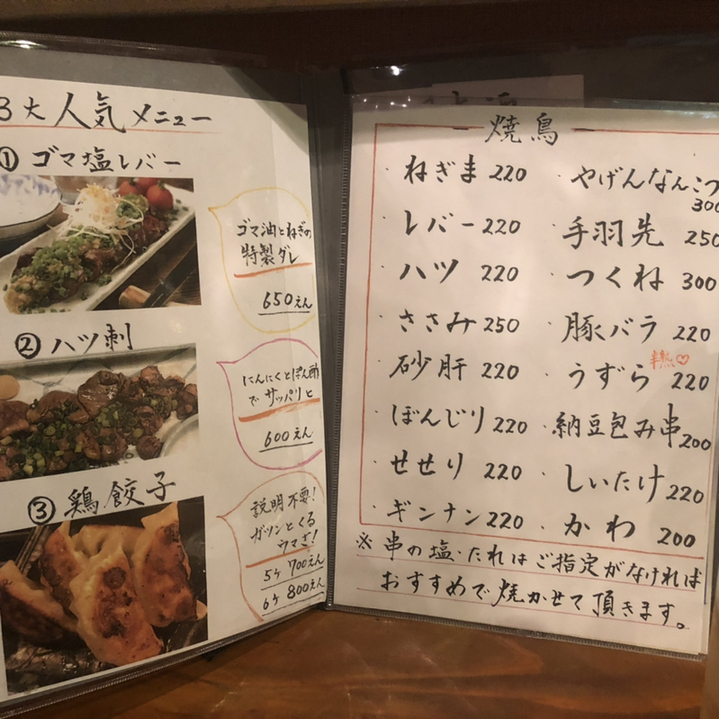 3大人気メニュー
① ゴマ塩レバー
ゴマ油とねぎの
特製ダレ
650えん
② ハツ刺
にんにくとぽん酢
でサッパリと
600えん
③ 鶏餃子
説明不要!
ガツンとくる
ウマさ!
5ケ 700えん
6ケ 800えん
焼鳥
・ねぎま 220
・レバー 220
・ハツ 220
・ささみ 250
・砂肝 220
・ぼんじり 220
・せせり 220
・ギンナン 220
・やげんなんこつ
300
・手羽先 250
・つくね 300
・豚バラ 220
半熟♡
・うずら 220
・納豆包み串 200
・しいたけ 220
・かわ 200
※ 串の塩・たれはご指定がなければ
おすすめで焼かせて頂きます。